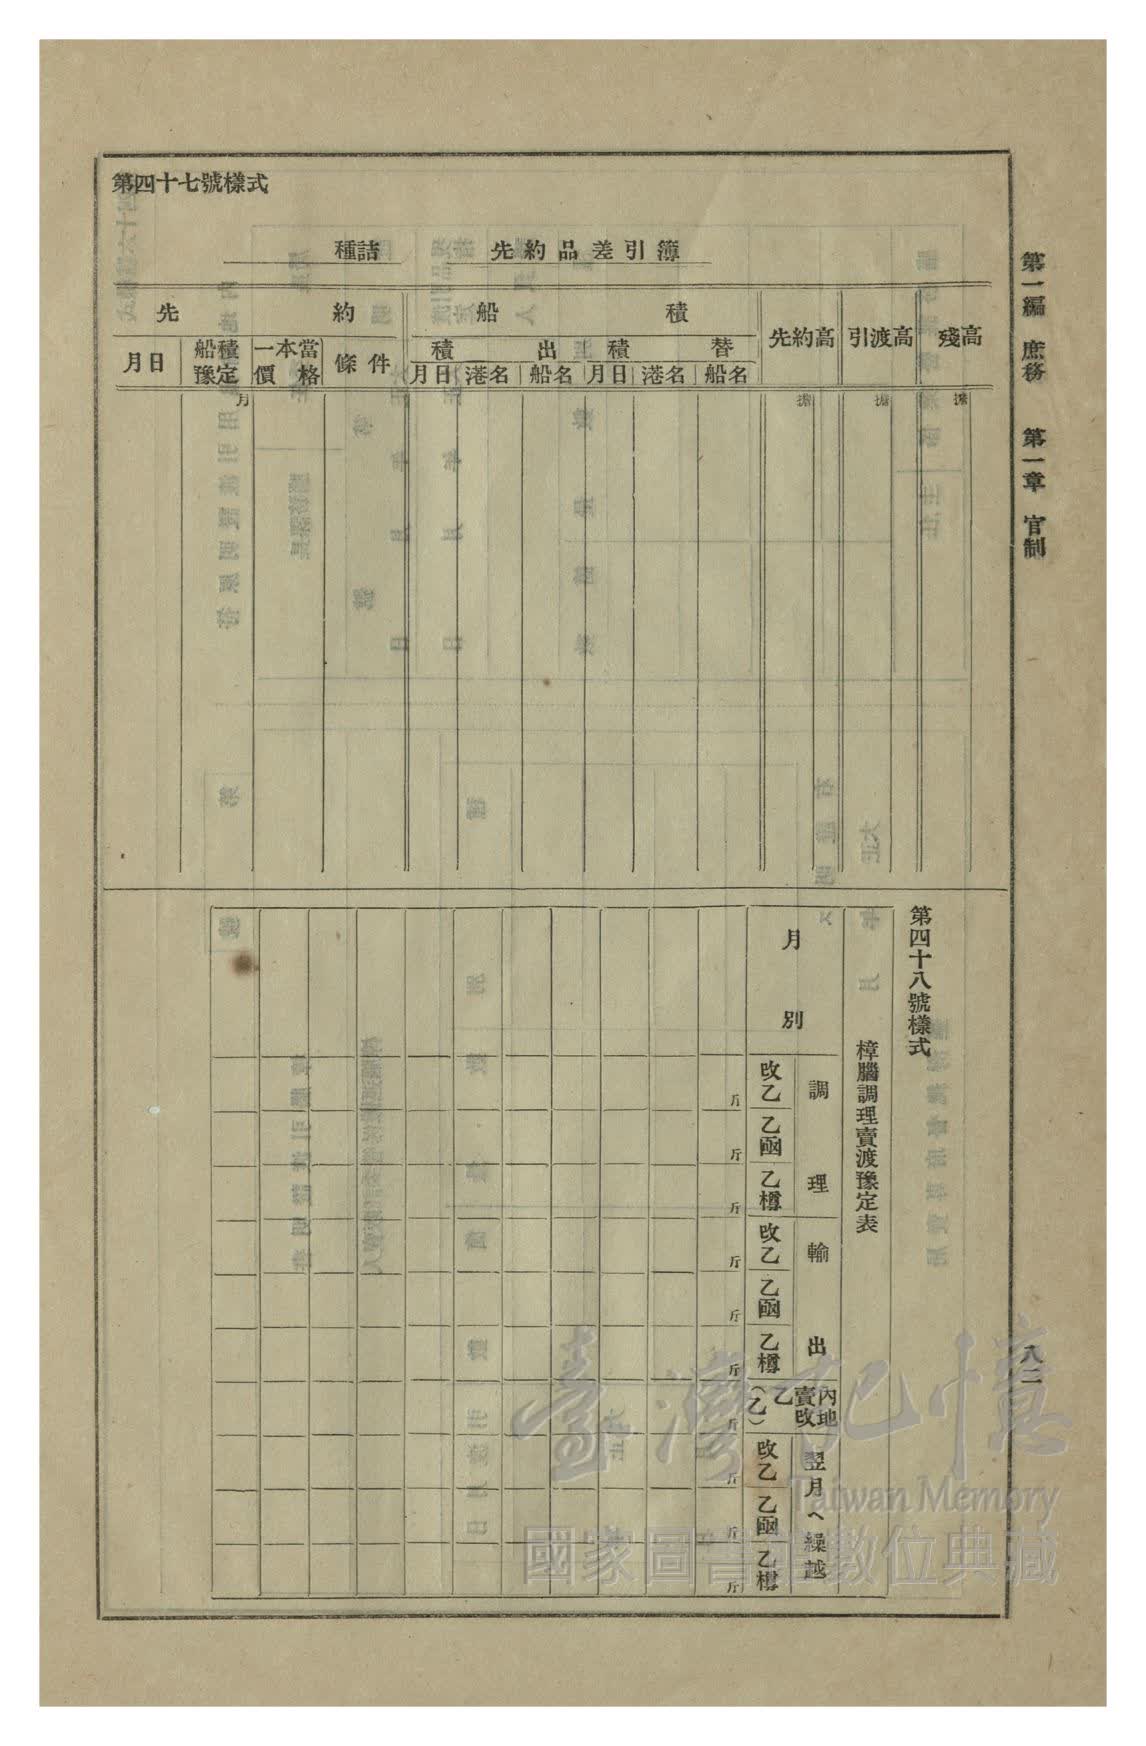 第一編 庶務 第一章 官制
八二
第四十七號樣式
種詰 先約品差引簿
先約 船積 先約高 引渡高 殘高
月日 船積豫定 一本當價格 條件 積出 積替
月日 港名 船名 月日 港名 船名
月 擔 擔 擔
第四十八號樣式
樟腦調理賣渡豫定表
月別 調理 輸出 內地賣改乙(乙) 翌月ヘ繰越
改乙 乙凾 乙樽 改乙 乙凾 乙樽 改乙 乙凾 乙樽
斤 斤 斤 斤 斤 斤 斤 斤 斤 斤
臺灣記憶
Taiwan Memory
國家圖書館數位典藏